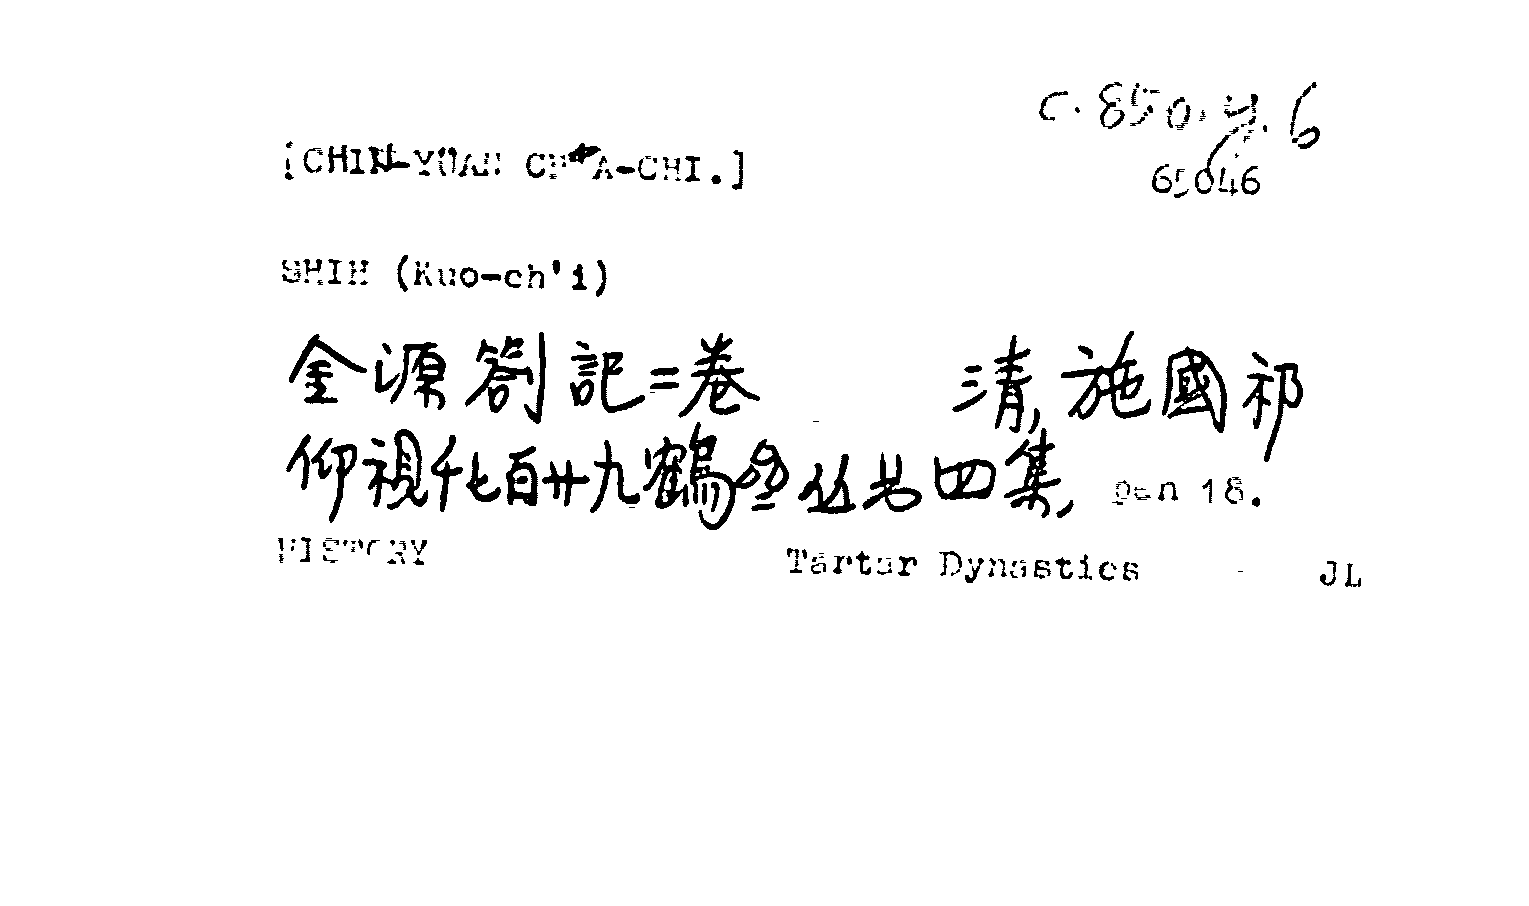 c. 850. y. 6
[CHIN-YUAN CH'A-CHI.]
65046
SHIH (Kuo-ch'i)
金源劄記二卷 清, 施國祁
仰視千七百廿九鶴 丛书四集, pen 18.
HISTORY Tartar Dynasties JL